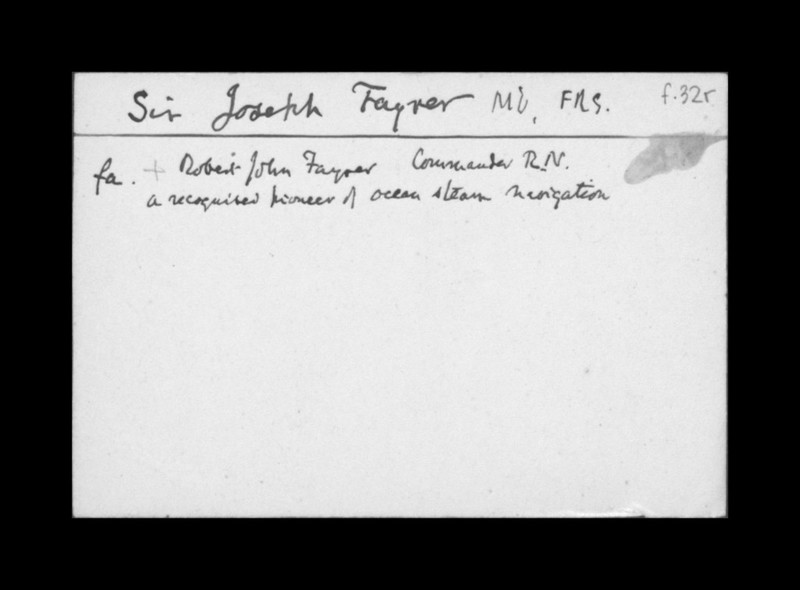 Sir Joseph Fayrer MD, FRS. f.32r
fa. + Robert John Fayrer Commander R.N.
a recognised pioneer of ocean steam navigation